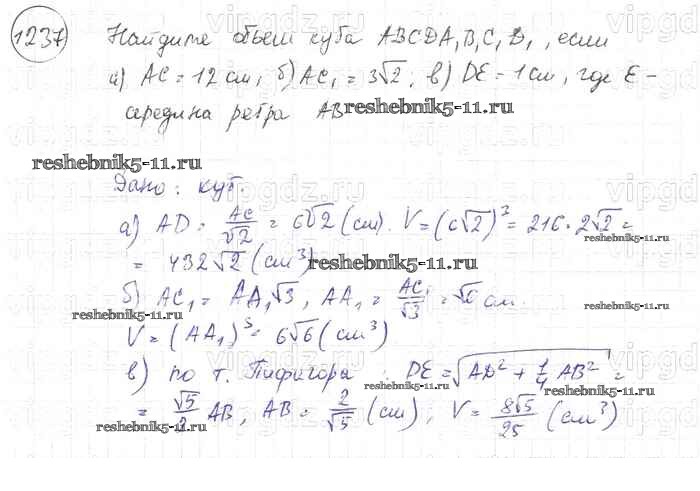 1237 Найдите объем куба ABCDA₁B₁C₁D₁, если
а) AC = 12 см; б) AC₁ = 3√2; в) DE = 1 см, где E –
середина ребра AB reshebnik5-11.ru
reshebnik5-11.ru
Дано: куб.
а) AD = AC/√2 = 6√2 (см). V = (6√2)³ = 216 · 2√2 =
reshebnik5-11.ru
= 432√2 (см³) reshebnik5-11.ru
б) AC₁ = AA₁√3, AA₁ = AC₁/√3 = √6 см.
reshebnik5-11.ru reshebnik5-11.ru
V = (AA₁)³ = 6√6 (см³)
в) по т. Пифагора: DE = √(AD² + 1/4 AB²) =
reshebnik5-11.ru reshebnik5-11.ru
= √5/2 AB, AB = 2/√5 (см), V = 8√5/25 (см³)
reshebnik5-11.ru reshebnik5-11.ru